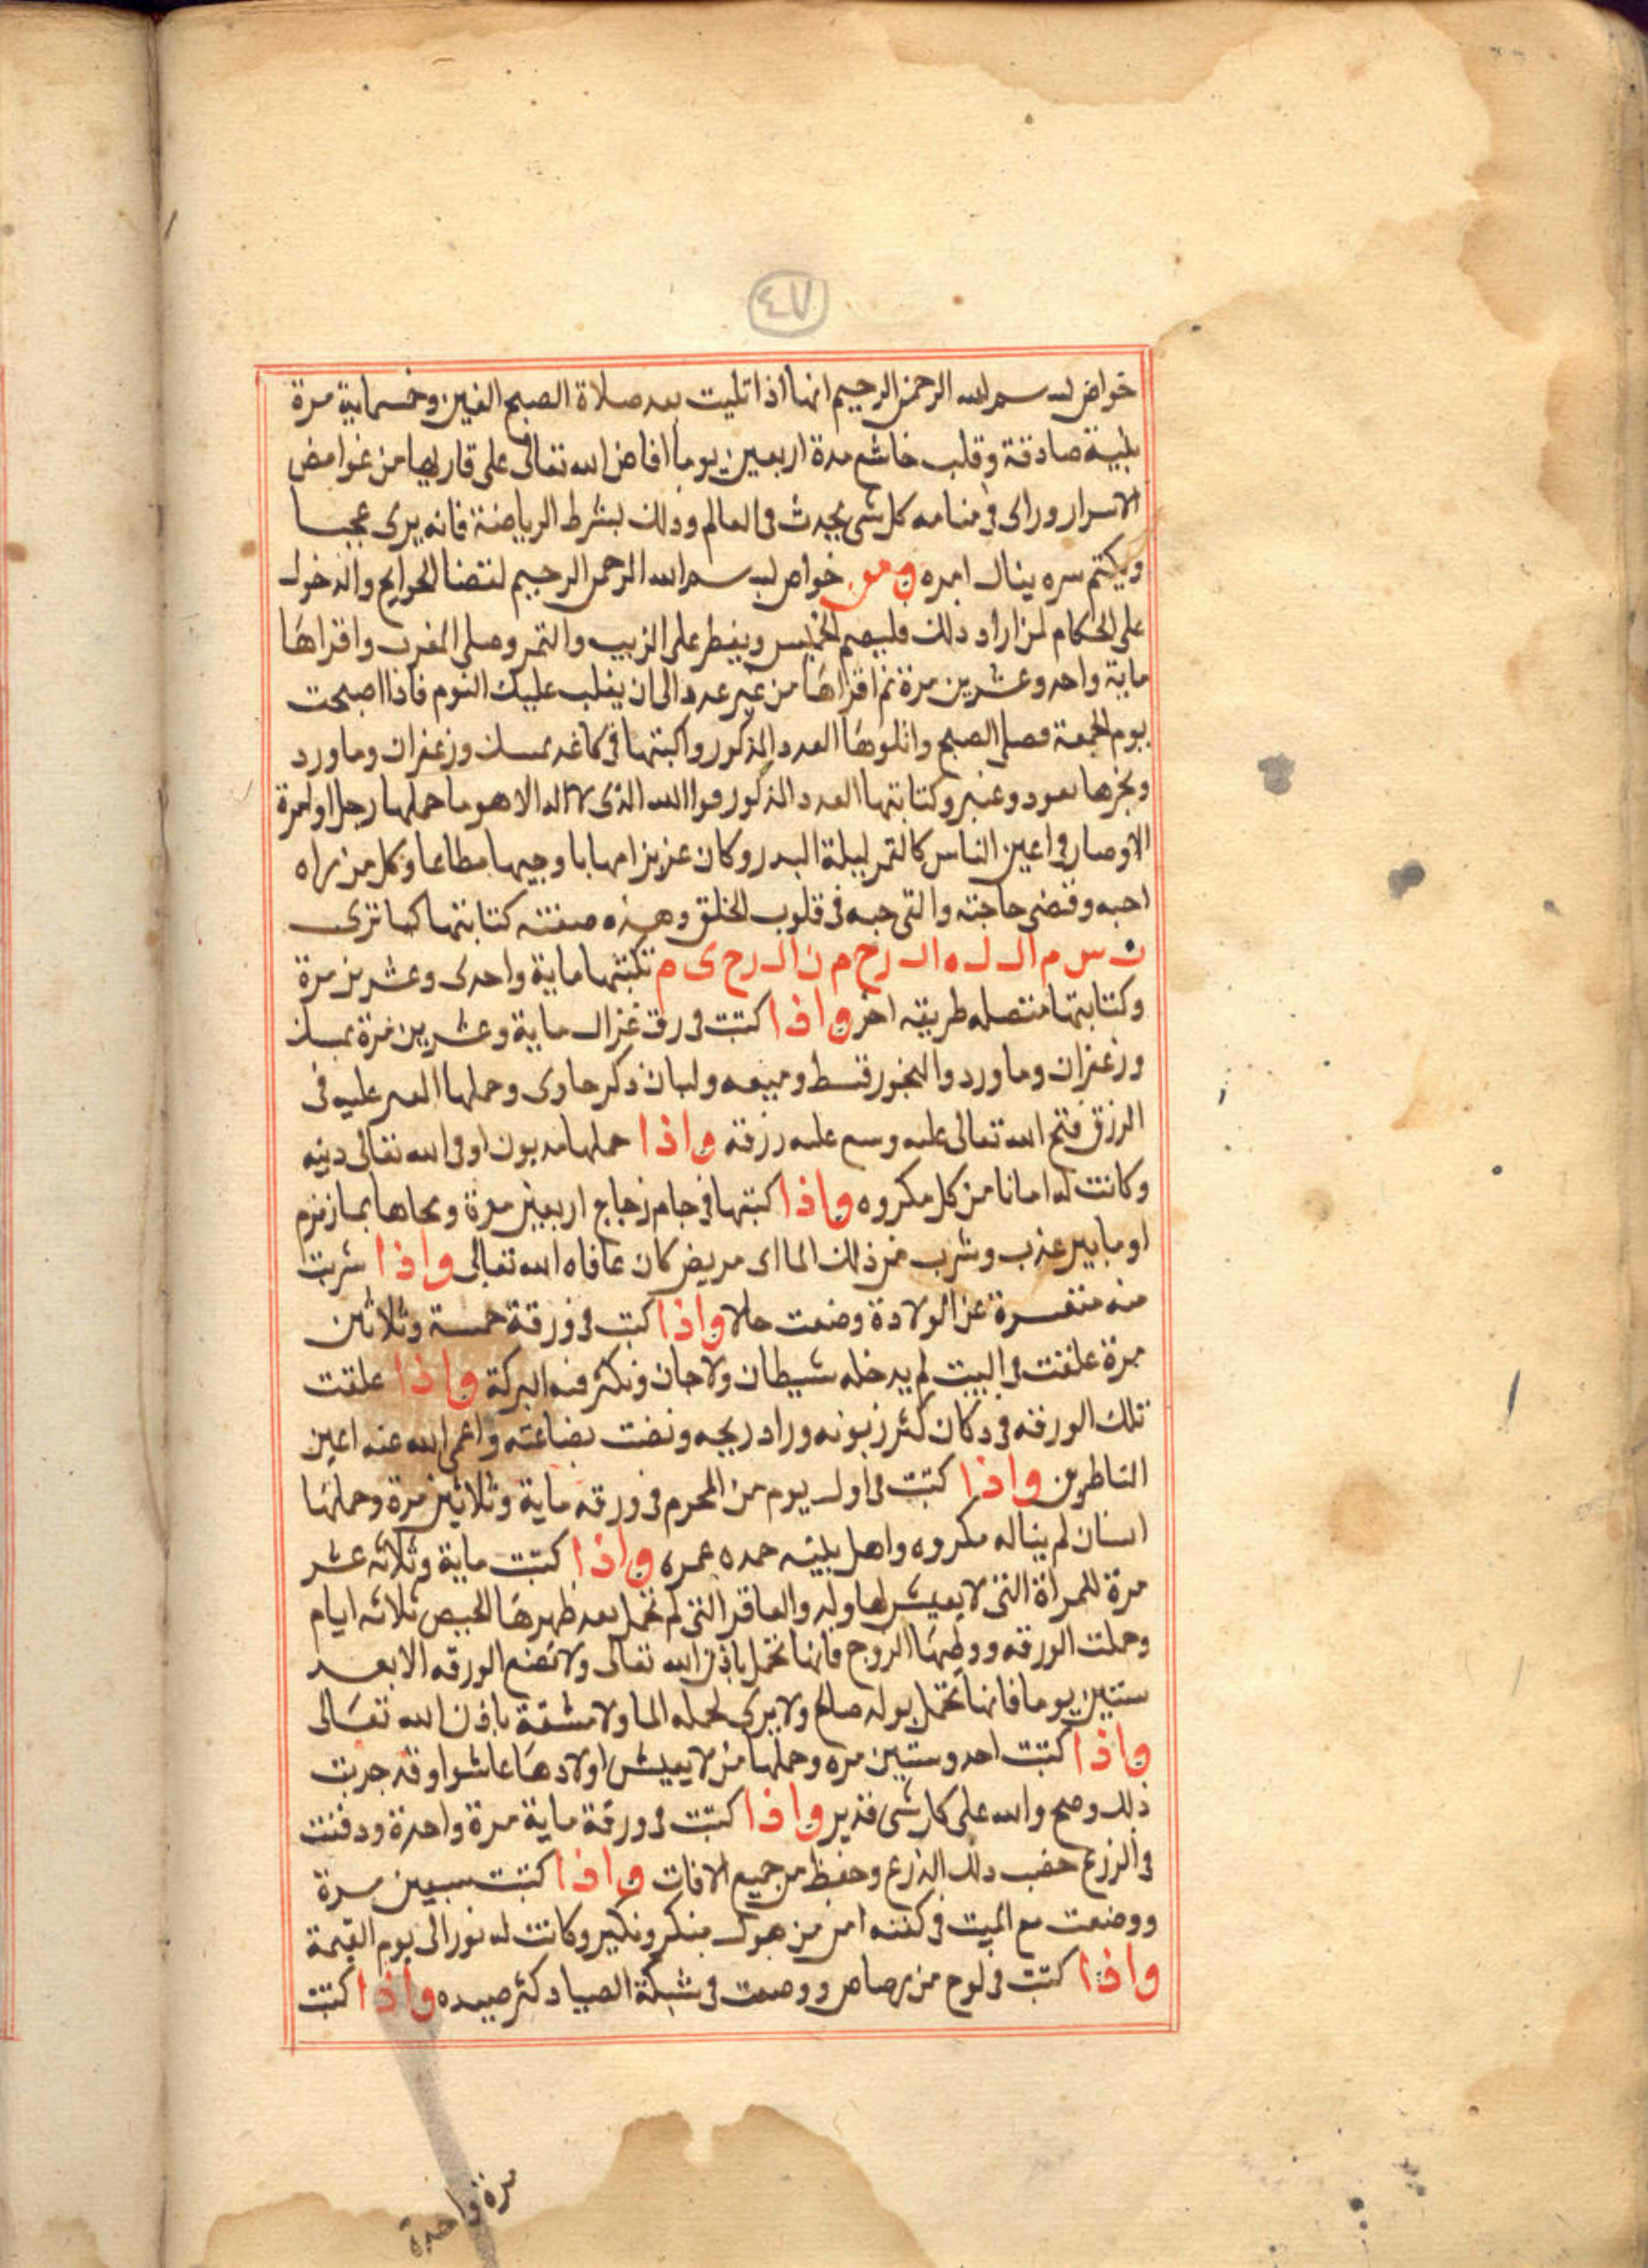 ٤٧
خواص بسم الله الرحمن الرحيم انها اذا تليت بعد صلاة الصبح الفين وخمسماية مرة
بنية صادقة وقلب خاشع مدة اربعين يوما افاض الله تعالى على قاريها من غوامض
الاسرار وراى في منامه كل شي يحدث في العالم وذلك بشرط الرياضة فانه يرى عجبا
ويكتم سره ينال امره ومن خواص بسم الله الرحمن الرحيم لقضا الحوايج والدخول
على الحكام لمن اراد ذلك فليصم الخميس ويفطر على الزبيب والتمر وصلى المغرب واقراها
ماية واحد وعشرين مرة ثم اقراها من غير عدد الى ان يغلب عليك النوم فاذا اصبحت
يوم الجمعة فصلى الصبح واتلوها العدد المذكور واكتبها في كاغد بمسك وزعفران وماورد
وبخرها بعود وعنبر وكتابتها العدد المذكور فوالله الذى لا اله الا هو ما حملها رجل او امرة
الا وصار في اعين الناس كالقمر ليلة البدر وكان عزيزا مهابا وجيها مطاعا وكل من راه
احبه وقضى حاجته والقى حبه في قلوب الخلق وهذه صفته كتابتها كما ترى
ب س م ا ل ل ه ا ل ر ح م ن ا ل ر ح ى م تكتبها ماية واحدى وعشرين مرة
وكتابتها متصله طريقه اخر واذا كتبت في رق غزال ماية وعشرين مرة بمسك
وزعفران وماورد والبخور قسط وميعه ولبان ذكر جاوى وحملها العسر عليه في
الرزق فتح الله تعالى عليه وسع عليه رزقه واذا حملها مديون اوفى الله تعالى دينه
وكانت له امانا من كل مكروه واذا كتبتها في جام زجاج اربعين مرة ومحاها بما زمزم
او ما بير عذب وشرب من ذلك الما اى مريض كان عافاه الله تعالى واذا شربت
منه متعسرة عن الولادة وضعت حالا واذا كتبت في ورقة خمسة وثلاثين
مرة علقت في البيت لم يدخله شيطان ولا جان وتكثر فيه البركة واذا علقت
تلك الورقه في دكان كثر زبونه وزاد ربحه ونفت بضاعته واعمى الله عنه اعين
الناظرين واذا كتبت في اول يوم من المحرم في ورقه ماية وثلاثين مرة وحملها
انسان لم يناله مكروه واهل بيته مده عمره واذا كتبت ماية وثلاثه عشر
مرة للمراة التى لا يعيش لها ولد والعاقر التى لم تحمل بعد طهرها الحيص ثلاثه ايام
وحملت الورقه ووطيها الزوج فانها تحمل باذن الله تعالى ولا تضع الورقه الا بعد
ستين يوما فانها تحمل بولد صالح ولا يرى لحمله الما ولا مشقة باذن الله تعالى
واذا كتبت احد وستين مره وحملها من لا يعيش اولادها عاشوا وقد جربت
ذلك وصح والله على كل شى قدير واذا كتبت في ورقة ماية مرة واحدة ودفنت
في الزرع خصب ذلك الزرع وحفظ من جميع الافات واذا كتبت سبعين مرة
ووضعت مع الميت في كفنه امن من هول منكر ونكير وكانت له نورا الى يوم القيمة
واذا كتبت في لوح من رصاص ووضعت في شبكة الصياد كثر صيده واذا كتبت
مرة واحدة